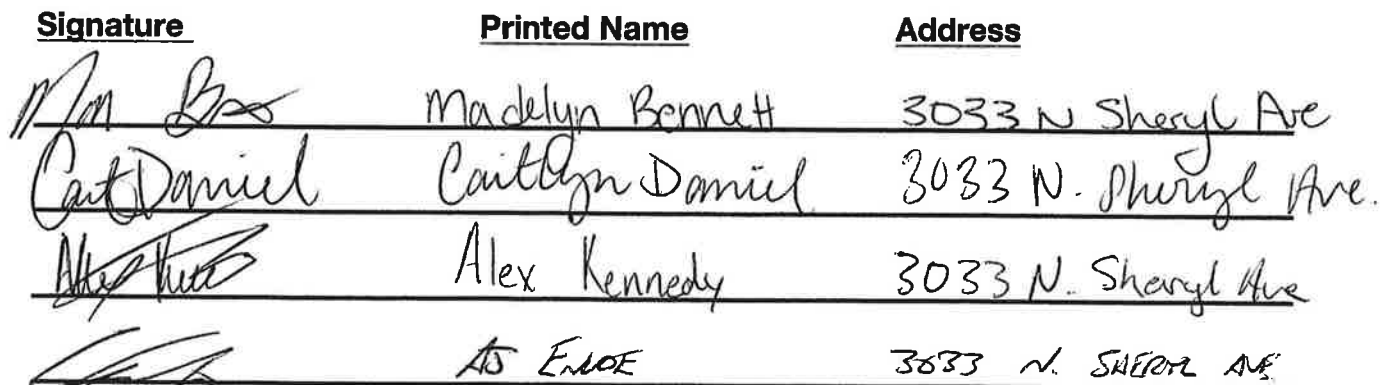 Signature Printed Name Address
Madelyn Bennett 3033 N Sheryl Ave
Cait Daniel Caitlyn Daniel 3033 N. Sheryl Ave.
Alex Kennedy 3033 N. Sheryl Ave
AJ 3033 N. SHERYL AVE